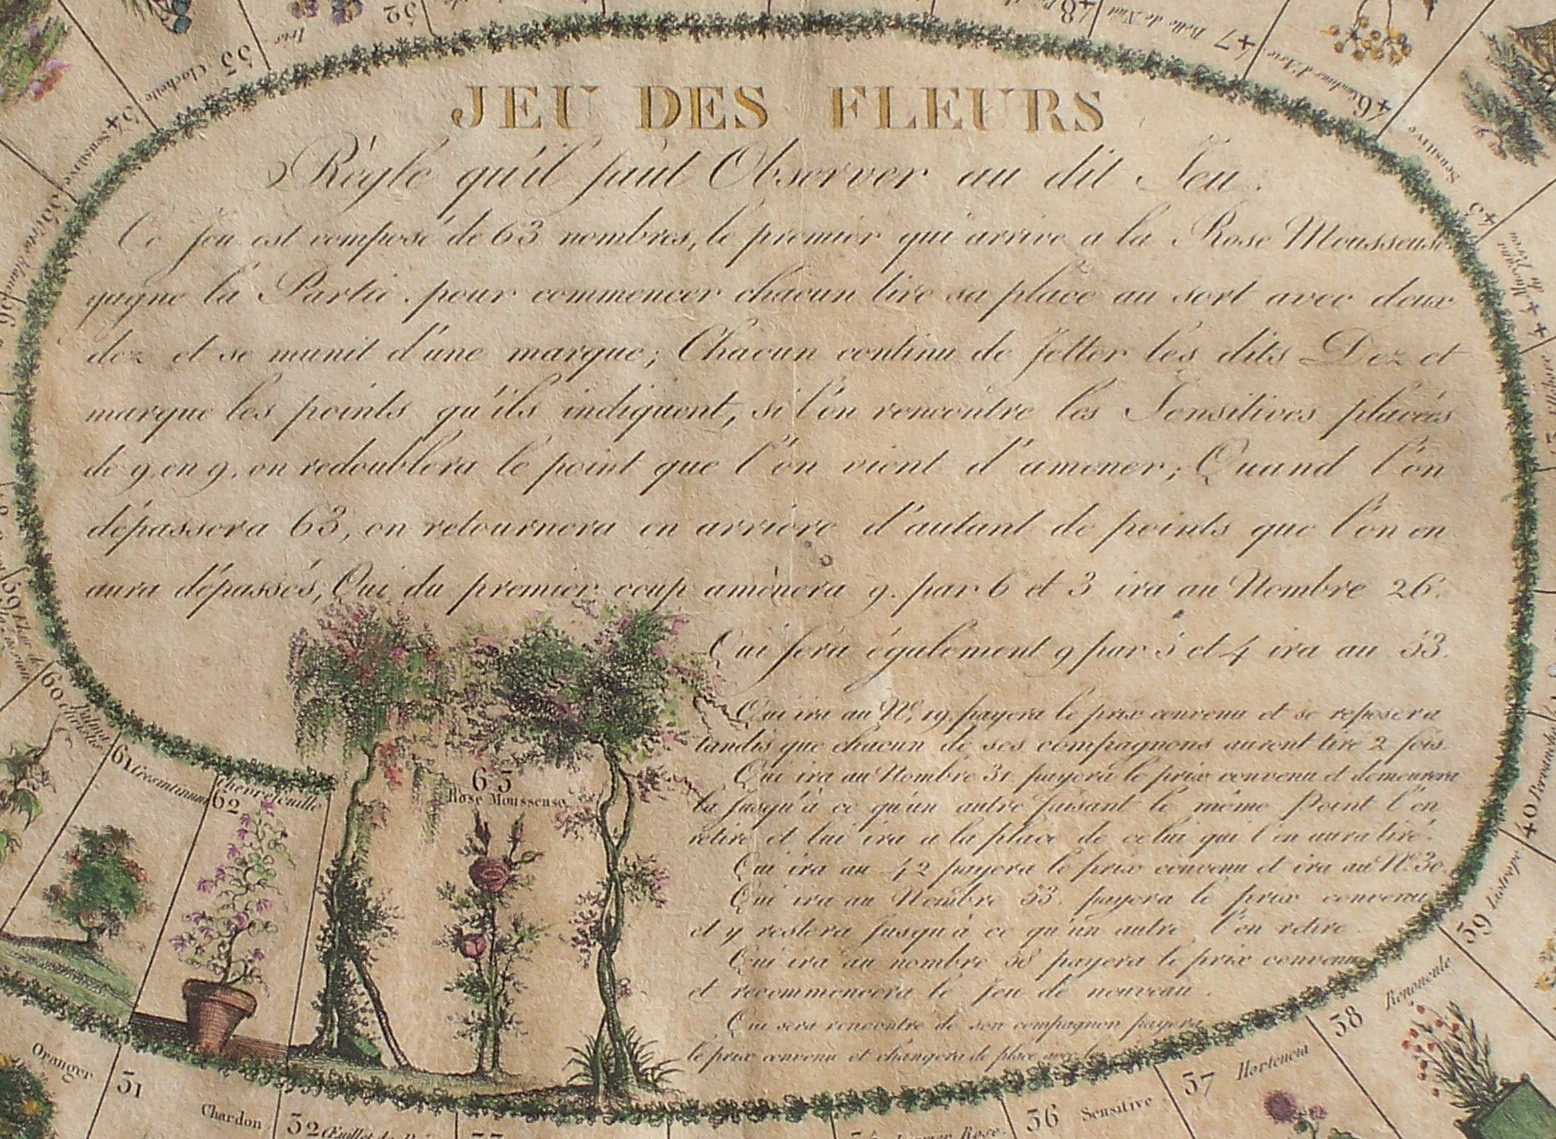 JEU DES FLEURS
Règle qu'il faut Observer au dit Jeu.
Ce Jeu est composé de 63 nombres, le premier qui arrive a la Rose Mousseuse
gagne la Partie. pour commencer chacun tire sa place au sort avec deux
dez et se munit d'une marque; Chacun continu de Jetter les dits Dez et
marque les points qu'ils indiquent, si l'on rencontre les Sensitives placées
de 9. en 9. on redoublera le point que l'on vient d'amener; Quand l'on
dépassera 63, on retournera en arriere d'autant de points que l'on en
aura dépassés, Qui du premier coup aménera 9. par 6 et 3 ira au Nombre 26.
Qui fera également 9 par 5 et 4 ira au 53.
Qui ira au Nº 19. payera le prix convenu et se reposera
tandis que chacun de ses compagnons auront tiré 2 fois.
Qui ira au Nombre 31 payera le prix convenu et demeurera
là jusqu'à ce qu'un autre faisant le même Point l'en
retire et lui ira a la place de celui qui l'en aura tiré.
Qui ira au 42 payera le prix convenu et ira au Nº 30.
Qui ira au Nombre 53. payera le prix convenu
et y restera jusqu'à ce qu'un autre l'en retire.
Qui ira au nombre 58 payera le prix convenu
et recommencera le Jeu de nouveau.
Qui sera rencontré de son compagnon payera
le prix convenu et changera de place avec lui
63
Rose Mousseuse
32
Iris
33 Clochette
34 Sensitive
35
36
59
60
61
62 Chevrefeuille
48
47 Belle de Nuit
46
Sensitive
45
44
40 Pervenche
39
38 Renoncule
37 Hortencia
36 Sensitive
Oranger
31
Chardon
32
33